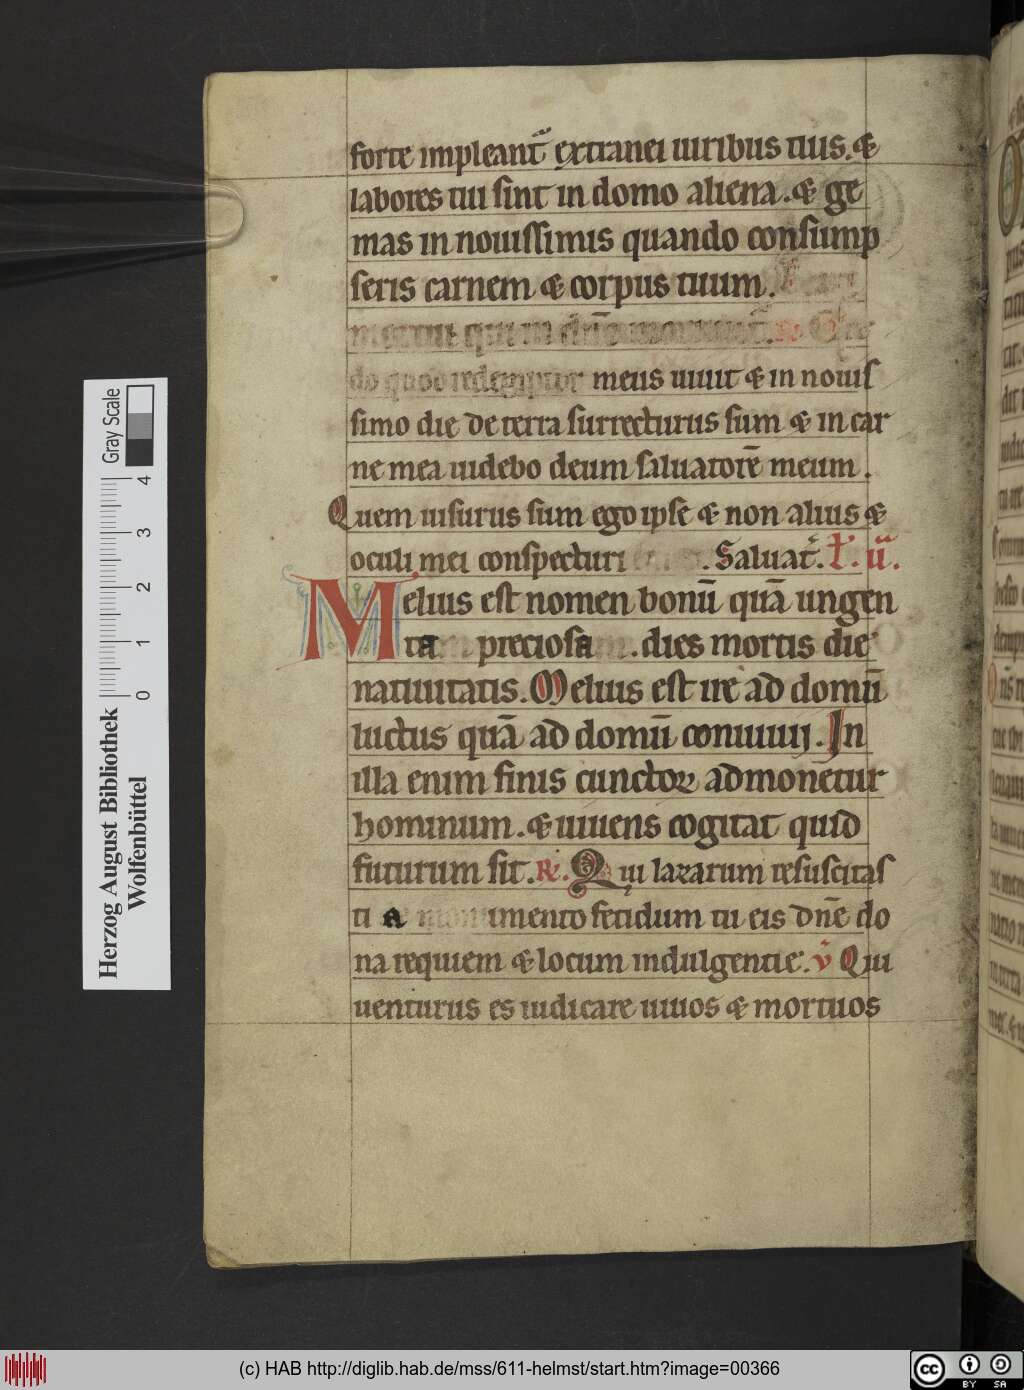 forte impleant᷑ extranei uiribus tuis. &
labores tui sint in domo aliena. & ge
mas in nouissimis quando consump
seris carnem & corpus tuum.
mortui qui in
do quod redemptor meus uiuit & in nouis
simo die de terra surrecturus sum & in car
ne mea uidebo deum saluatorē meum.
Quem uisurus sum ego ipse & non alius &
oculi mei conspecturi . Saluat᷑. t᷑. ii᷑.
Melius est nomen bonū quā ungen
ta preciosa . dies mortis die
natiuitatis. Melius est ire ad domū
luctus quā ad domū conuiuij. In
illa enim finis cunctoꝝ admonetur
hominum. & uiuens cogitat quid
futurum sit. R᷑. Qui lazarum resuscitas
ti a monumento fetidum tu eis dn̄e do
na requiem & locum indulgentie. v᷑ Qui
uenturus es iudicare uiuos & mortuos
Herzog August Bibliothek
Wolfenbüttel
0 1 2 3 4
Gray Scale
(c) HAB http://diglib.hab.de/mss/611-helmst/start.htm?image=00366
cc BY SA